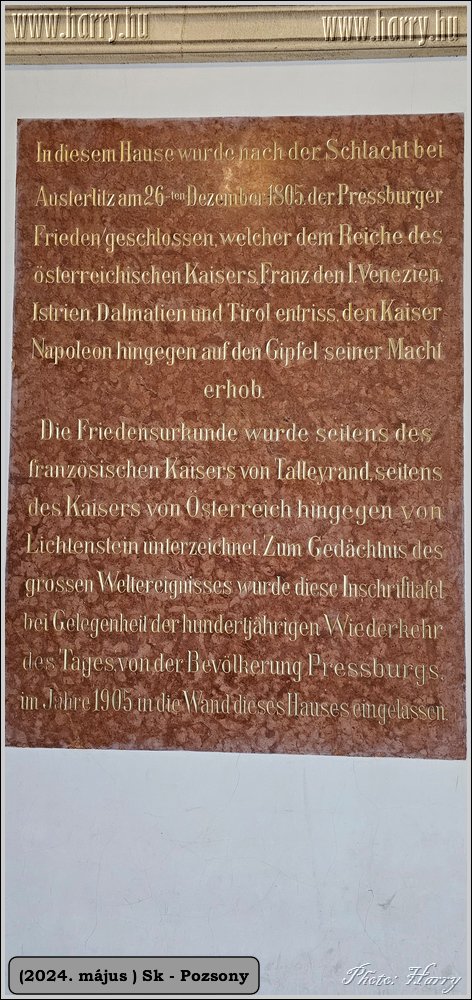 www.harry.hu www.harry.hu
In diesem Hause wurde nach der Schlacht bei
Austerlitz am 26-ten Dezember 1805. der Pressburger
Frieden geschlossen, welcher dem Reiche des
österreichischen Kaisers, Franz den I. Venezien.
Istrien, Dalmatien und Tirol entriss, den Kaiser
Napoleon hingegen auf den Gipfel seiner Macht
erhob.
Die Friedensurkunde wurde seitens des
französischen Kaisers von Talleyrand, seitens
des Kaisers von Österreich hingegen von
Lichtenstein unterzeichnet. Zum Gedächtnis des
grossen Weltereignisses wurde diese Inschrifttafel
bei Gelegenheit der hundertjährigen Wiederkehr
des Tages, von der Bevölkerung Pressburgs,
im Jahre 1905 in die Wand dieses Hauses eingelassen.
(2024. május ) Sk - Pozsony
Photo: Harry